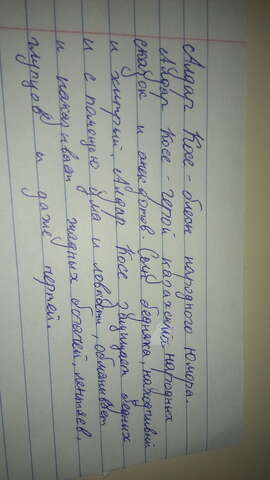 Алдар Косе - облон народного юмора.
Алдар Косе - герой казахский народных
сказок и анекдотов. Сын бедняка, находчивый
и хитрый, Алдар Косе защищает бедных
и с помощью ума и ловкости, обманывает
и наказывает жадных богачей, лентяев,
глупцов и даже чертей.